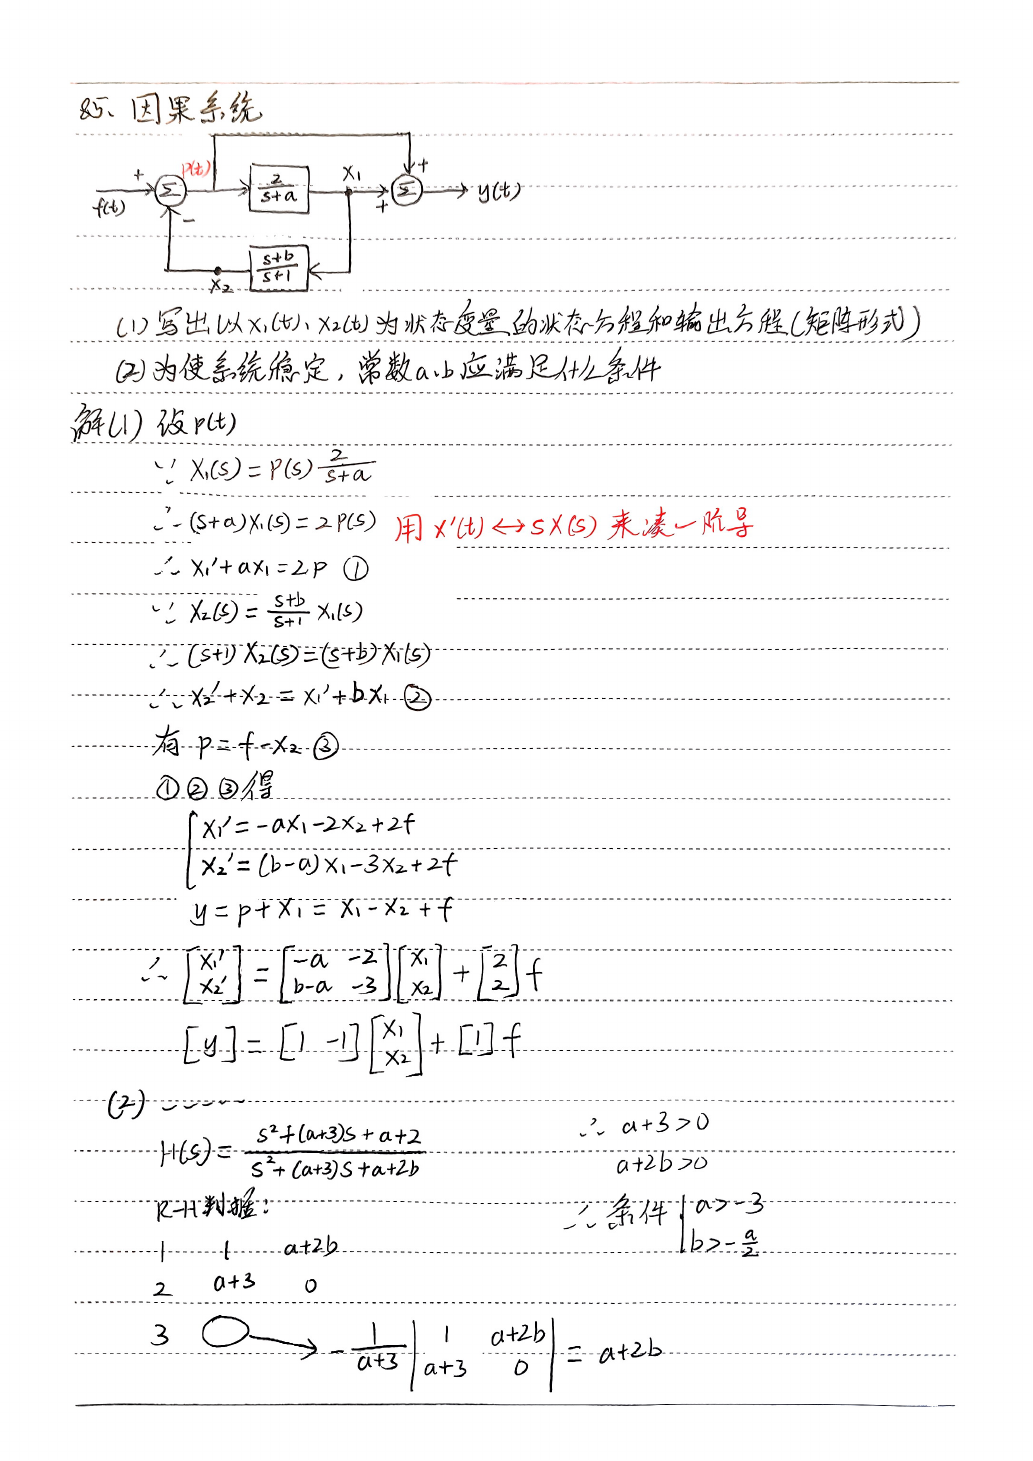 85、因果系统
+ p(t) 2/(s+a) X₁ +
f(t) Σ Σ y(t)
- +
(s+b)/(s+1)
X₂
(1) 写出以X₁(t)、X₂(t)为状态变量的状态方程和输出方程(矩阵形式)
(2) 为使系统稳定，常数a、b应满足什么条件
解(1) 设p(t)
∵ X₁(s) = P(s) 2/(s+a)
∴ (s+a)X₁(s) = 2P(s) 用 x'(t)↔sX(s) 来凑一阶导
∴ x₁'+ax₁=2p ①
∵ X₂(s) = (s+b)/(s+1) X₁(s)
∴ (s+1)X₂(s)=(s+b)X₁(s)
∴ x₂'+x₂ = x₁'+bx₁ ②
有 p = f-x₂ ③
①②③得
{ x₁' = -ax₁-2x₂+2f
x₂' = (b-a)x₁-3x₂+2f
y = p+x₁ = x₁-x₂+f
∴ [x₁' x₂'] = [-a -2 b-a -3][x₁ x₂] + [2 2]f
[y] = [1 -1][x₁ x₂] + [1]f
(2) -----
H(s) = (s²+(a+3)s+a+2)/(s²+(a+3)s+a+2b)
R-H判据:
1 1 a+2b
2 a+3 0
3 → -1/(a+3) |1 a+2b a+3 0| = a+2b
∴ a+3>0
a+2b>0
∴ 条件 { a>-3
b>-a/2